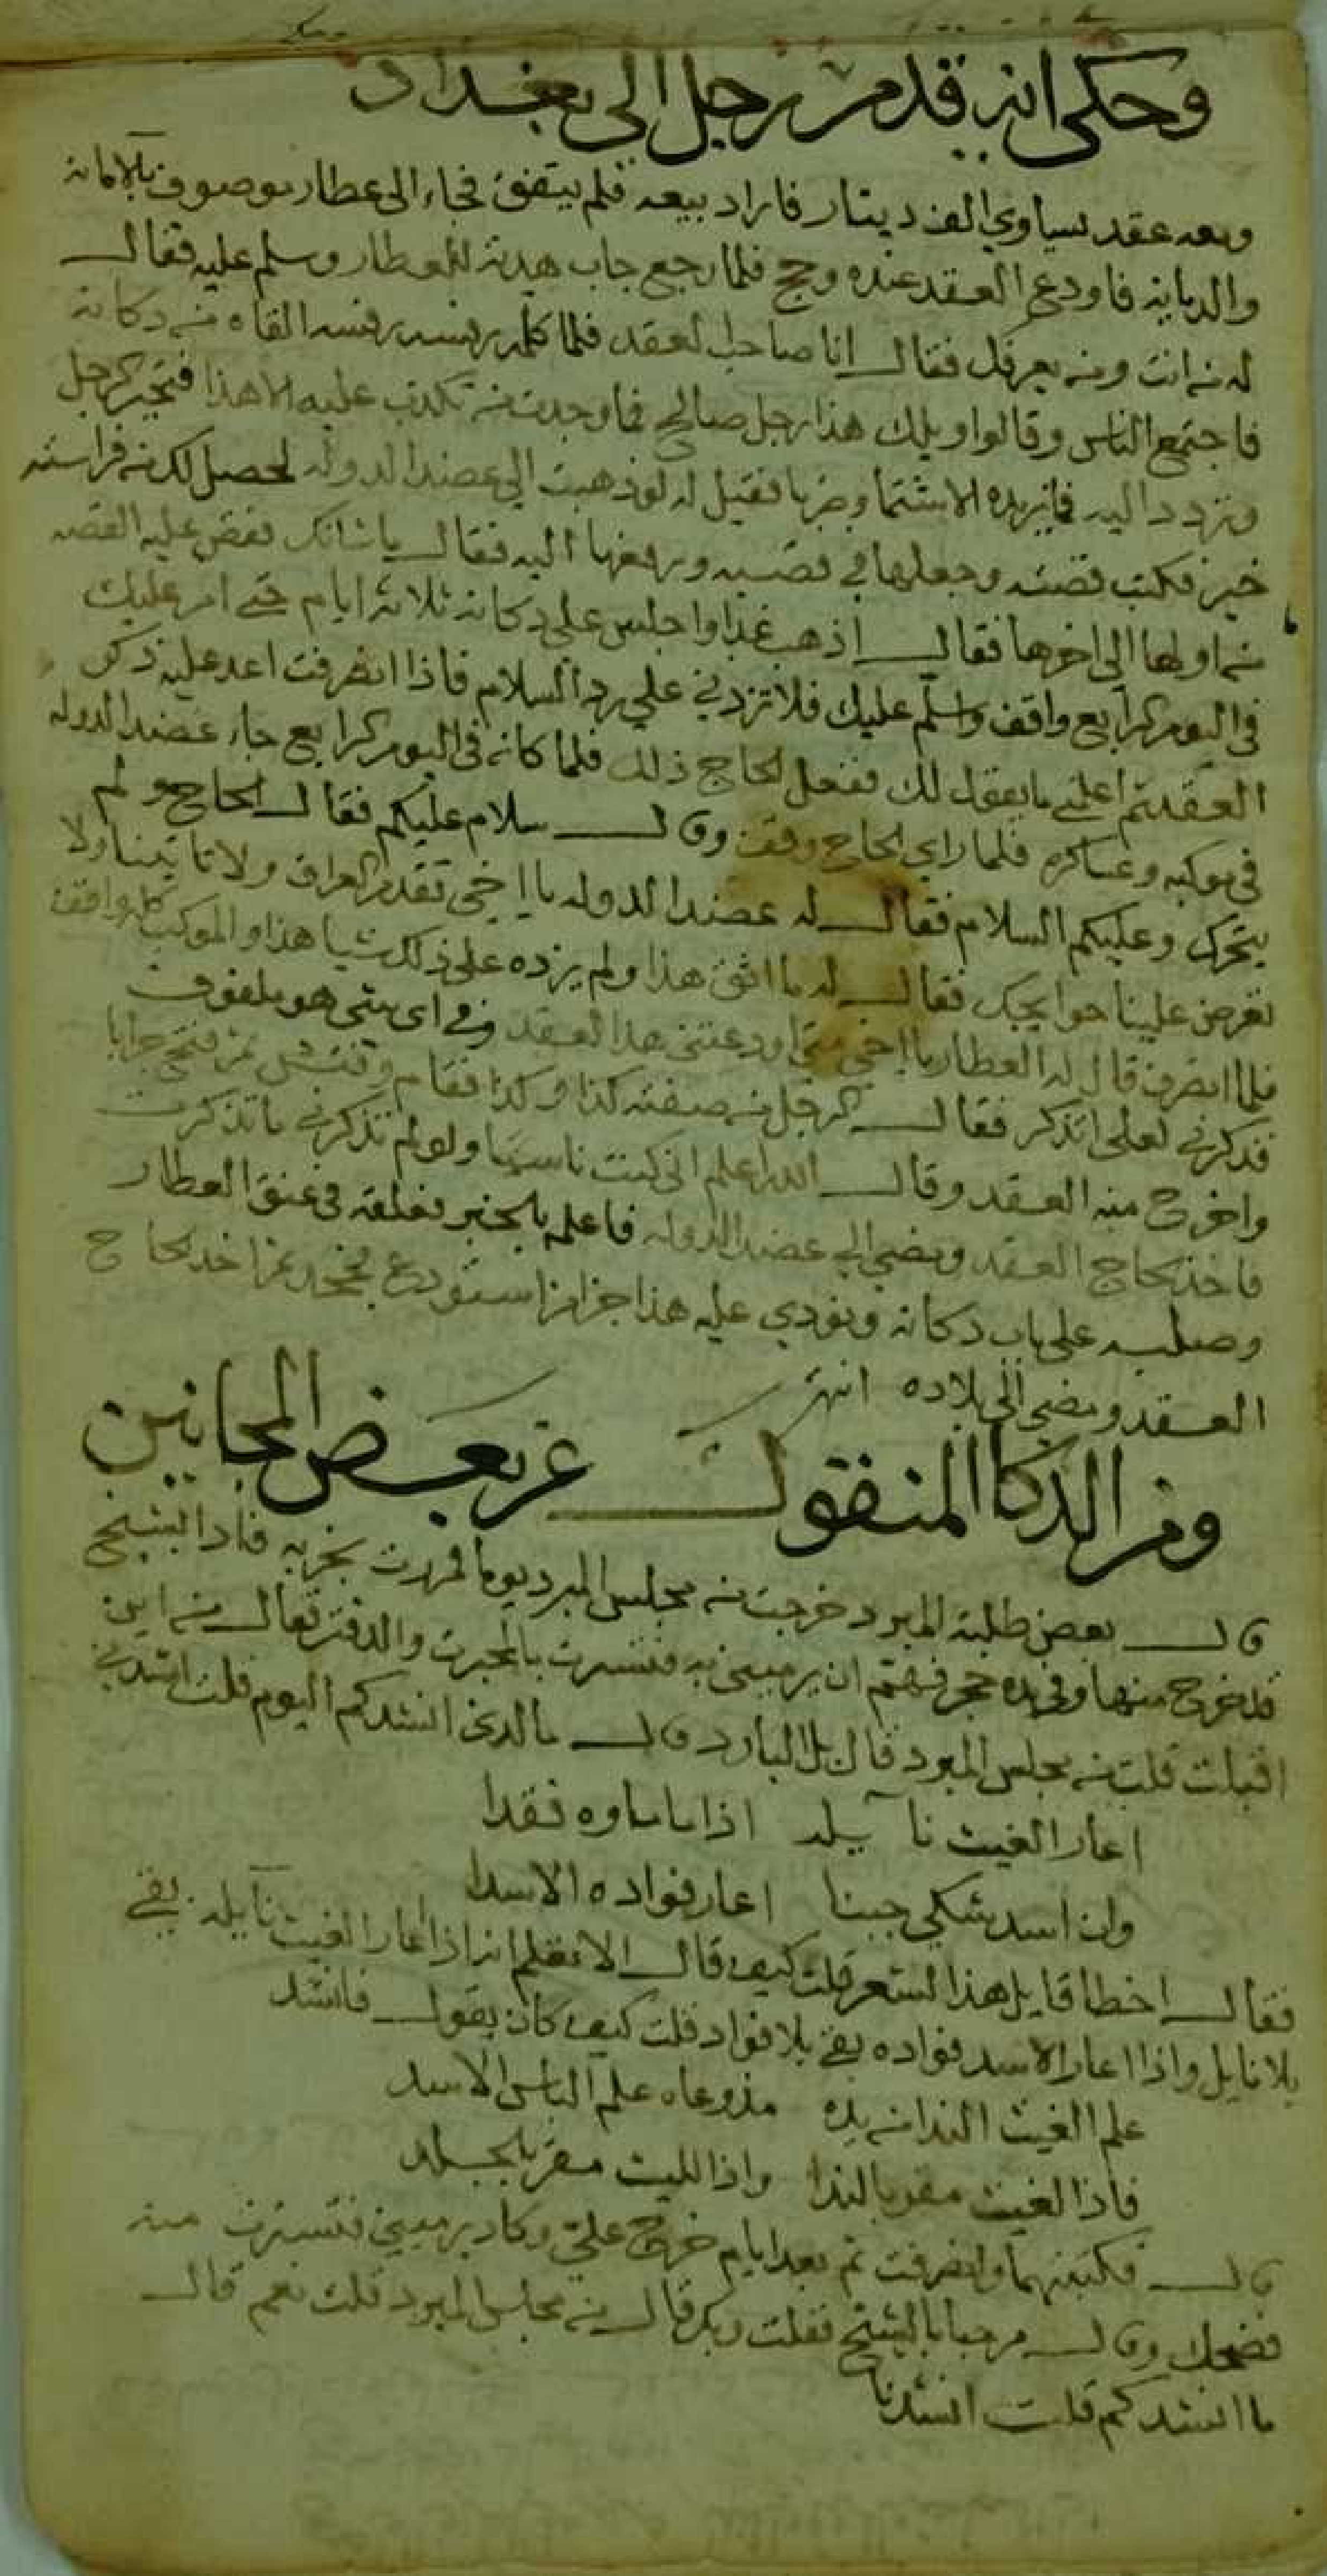 وحكى انه قدم رجل الى بغداد
ومعه عقد يساوي الف دينار فاراد بيعه فلم يتفق فجاء الى عطار موصوف بالامانه
والديانه فاودع العقد عنده وحج فلما رجع جاب هدية للعطار وسلم عليه فقال
له من انت ومن يعرفك فقال انا صاحب العقد فلما كلمه رفسه رفسه القاه من دكانه
فاجتمع الناس وقالوا ويلك هذا رجل صالح فما وجدت من تكذب عليه الا هذا فتحير الرجل
وتردد اليه فما يزيده الا شتما وضربا فقيل له لو ذهبت الى عضد الدوله لحصل لك من فراسته
خير فكتب قصته وجعلها في قصبه ورفعها اليه فقال ما شانك فقص عليه القصه
من اولها الى اخرها فقال اذهب غدا واجلس على دكانه ثلاثه ايام حتى امر عليك
في اليوم الرابع واقف واسلم عليك فلا تزدني على رد السلام فاذا انصرفت اعد عليه ذكر
العقد ثم اعلمني ما يقول لك ففعل الحاج ذلك فلما كان في اليوم الرابع جاء عضد الدوله
في موكبه وعساكره فلما راى الحاج وقف وقال سلام عليكم فقال الحاج ولم
يتحرك وعليكم السلام فقال له عضد الدوله يا اخي تقدم العراق ولا تاتينا ولا
تعرض علينا حوايجك فقال له ما اتفق هذا ولم يزده على ذلك شيا هذا والموكب كله واقف
فلما انصرف قال له العطار يا اخي متى اودعتني هذا العقد وفي اى شى هو ملفوف
فذكرني لعلي اتذكر فقال الرجل من صفته كذا وكذا فقام وفتش ثم فتح جرابا
واخرج منه العقد وقال الله اعلم اني كنت ناسيها ولو لم تذكرني ما تذكرت
فاخذ الحاج العقد ومضى الى عضد الدوله فاعلمه بالخبر فعلقه في عنق العطار
وصلبه على باب دكانه ونودي عليه هذا جزا من استودع فجحد ثم اخذ الحاج
العقد ومضى الى بلاده انتهى
ومن الذكا المنقول عن بعض المجانين
قال بعض طلبة المبرد خرجت من مجلس المبرد يوما فمررت بخربه فاذا بشيخ
قد خرج منها وفي يده حجر فهم ان يرميني به فتسترت بالمحبرت والدفتر فقال من اين
اقبلت قلت من مجلس المبرد قال بل البارد قال ما الذى انشدكم اليوم قلت انشدني
اعار الغيث نايله اذا ما ماوه نفدا
وان اسد شكى جبنا اعار فواده الاسدا
فقال اخطا قايل هذا الشعر قلت كيف قال الا تعلم انه اذا اعار الغيث نايله بقي
بلا نايل واذا اعار الاسد فواده بقي بلا فواد قلت كيف كان يقول فانشد
علم الغيث الندا من يده مذ وعاه علم الباس الاسد
فاذا الغيث مقر بالندا واذا الليث مقر بالجلد
قال فكتبتهما وانصرفت ثم بعد ايام خرج علي وكاد يرميني فتسترت منه
فضحك وقال مرحبا بالشيخ فقلت وبك قال من مجلس المبرد قلت نعم قال
ما انشدكم قلت انشدنا